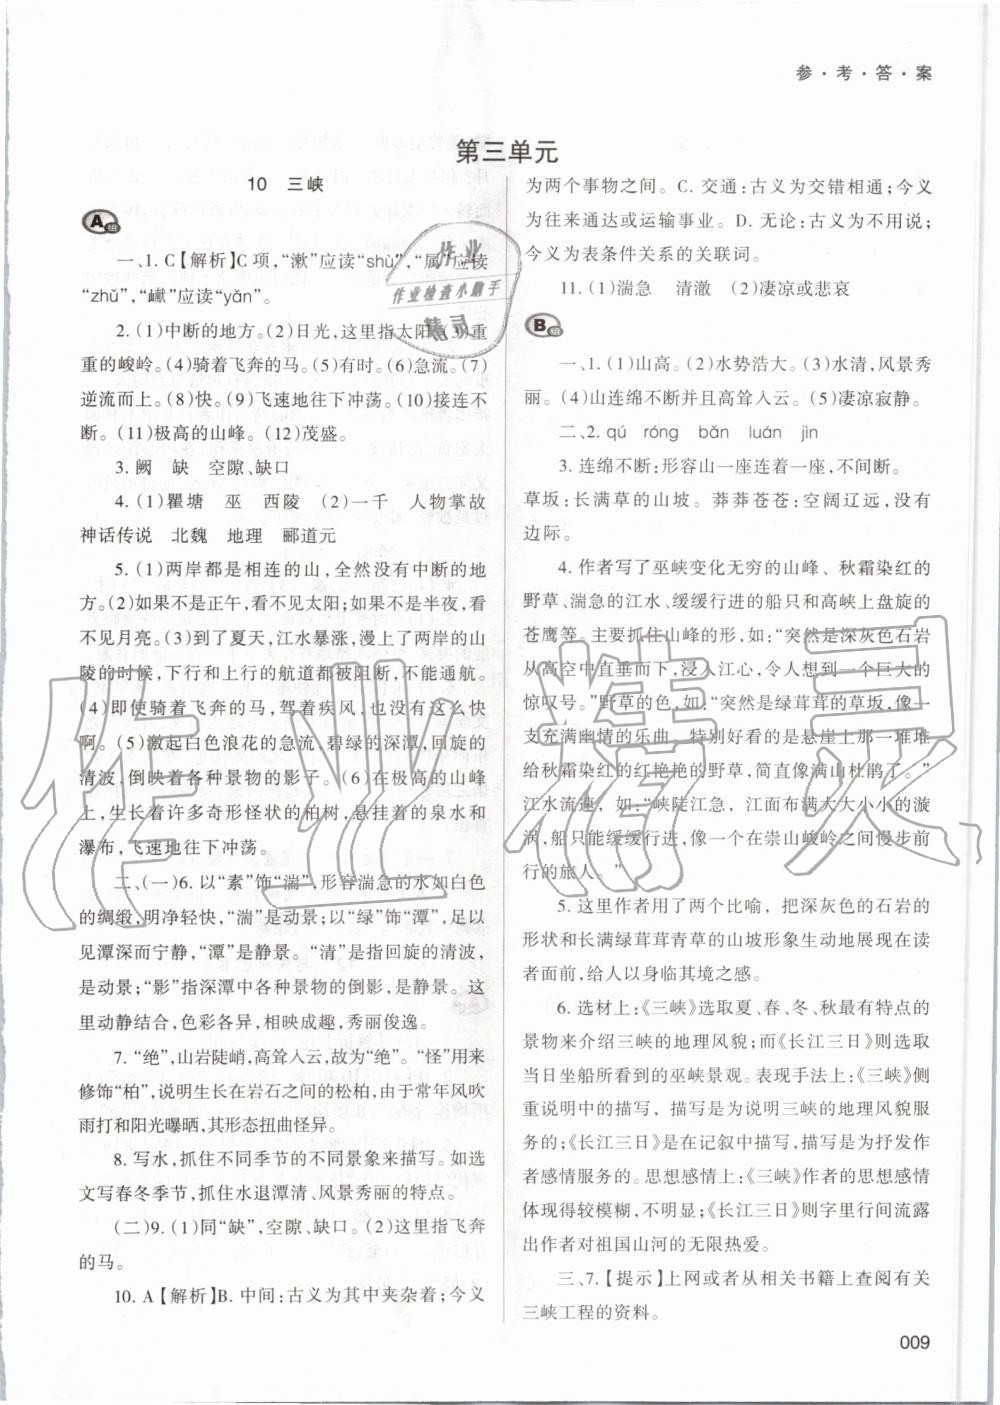 参·考·答·案
第三单元
10 三峡
A组
一、1. C【解析】C项，“漱”应读“shù”，“属”应读
“zhǔ”，“巘”应读“yǎn”。
2. (1)中断的地方。(2)日光，这里指太阳。(3)重
重的峻岭。(4)骑着飞奔的马。(5)风。(6)急流。(7)
逆流而上。(8)快。(9)飞速地往下冲荡。(10)接连不
断。(11)极高的山峰。(12)茂盛。
3. 阙 缺 空隙、缺口
4. (1)瞿塘 巫 西陵 (2)一千 人物掌故
神话传说 北魏 地理 郦道元
5. (1)两岸都是相连的山，全然没有中断的地
方。(2)如果不是正午，看不见太阳；如果不是半夜，看
不见月亮。(3)到了夏天，江水暴涨，漫上了两岸的山
陵的时候，下行和上行的航道都被阻断，不能通航。
(4)即使骑着飞奔的马，驾着疾风，也没有这么快
啊。(5)激起白色浪花的急流，碧绿的深潭，回旋的
清波，倒映着各种景物的影子。(6)在极高的山峰
上，生长着许多奇形怪状的柏树，悬挂着的泉水和
瀑布，飞速地往下冲荡。
二、(一)6. 以“素”饰“湍”，形容湍急的水如白色
的绸缎，明净轻快，“湍”是动景；以“绿”饰“潭”，足以
见潭深而宁静，“潭”是静景。“清”是指回旋的清波，
是动景；“影”指深潭中各种景物的倒影，是静景。这
里动静结合，色彩各异，相映成趣，秀丽俊逸。
7. “绝”，山岩陡峭，高耸入云，故为“绝”。“怪”用来
修饰“柏”，说明生长在岩石之间的松柏，由于常年风吹
雨打和阳光曝晒，其形态扭曲怪异。
8. 写水，抓住不同季节的不同景象来描写。如选
文写春冬季节，抓住水退潭清、风景秀丽的特点。
(二)9. (1)同“缺”，空隙、缺口。(2)这里指飞奔
的马。
10. A【解析】B. 中间：古义为其中夹杂着；今义
为两个事物之间。C. 交通：古义为交错相通；今义
为往来通达或运输事业。D. 无论：古义为不用说；
今义为表条件关系的关联词。
11. (1)湍急 清澈 (2)凄凉或悲哀
B组
一、1. (1)山高。(2)水势浩大。(3)水清，风景秀
丽。(4)山连绵不断并且高耸入云。(5)凄凉寂静。
二、2. qú róng bǎn luán jìn
3. 连绵不断：形容山一座连着一座，不间断。
草坂：长满草的山坡。莽莽苍苍：空阔辽远，没有
边际。
4. 作者写了巫峡变化无穷的山峰、秋霜染红的
野草、湍急的江水、缓缓行进的船只和高峡上盘旋的
苍鹰等。主要抓住山峰的形，如：“突然是深灰色石岩
从高空中直垂而下，浸入江心，令人想到一个巨大的
惊叹号。”野草的色，如：“突然是绿茸茸的草坂，像一
支充满幽情的乐曲。特别好看的是悬崖上那一堆堆
给秋霜染得红艳艳的野草，简直像满山杜鹃了。”
江水流速，如：“峡陡江急，江面布满大大小小的漩
涡，船只能缓缓行进，像一个在崇山峻岭之间慢步前
行的旅人。”
5. 这里作者用了两个比喻，把深灰色的石岩的
形状和长满绿茸茸青草的山坡形象生动地展现在读
者面前，给人以身临其境之感。
6. 选材上：《三峡》选取夏、春、冬、秋最有特点的
景物来介绍三峡的地理风貌；而《长江三日》则选取
当日坐船所看到的巫峡景观。表现手法上：《三峡》侧
重说明中的描写，描写是为说明三峡的地理风貌服
务的；《长江三日》是在记叙中描写，描写是为抒发作
者感情服务的。思想感情上：《三峡》作者的思想感情
体现得较模糊，不明显；《长江三日》则字里行间流露
出作者对祖国山河的无限热爱。
三、7.【提示】上网或者从相关书籍上查阅有关
三峡工程的资料。
009
作业
作业检查小助手
精灵
作业精灵